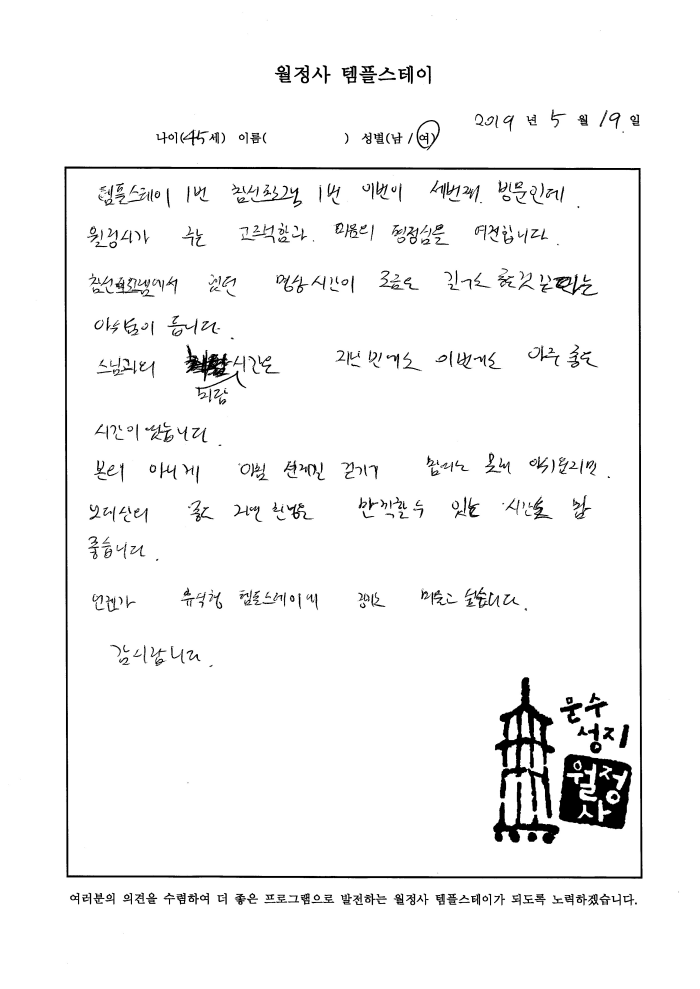 월정사 템플스테이
2019 년 5 월 19 일
나이(45세) 이름( ) 성별(남 / 여)
템플스테이 1번 참선 1번 이번이 세번째 방문인데
월정사가 주는 고즈넉함과 마음의 평정심은 여전합니다.
참선프로그램에서 했던 명상시간이 조금은
아쉬움이 듭니다.
스님과의 차담 시간은 지난 번에도 이번에도 아주 좋은
시간이었습니다.
본의 아니게 아침 선재길 걷기가 아쉬웠지만.
오대산의 좋은 자연 환경을 만끽할수 있는 시간은 참
좋습니다.
언젠가 휴식형 템플스테이에 머물고 싶습니다.
감사합니다.
문수
성지
월정
사
여러분의 의견을 수렴하여 더 좋은 프로그램으로 발전하는 월정사 템플스테이가 되도록 노력하겠습니다.